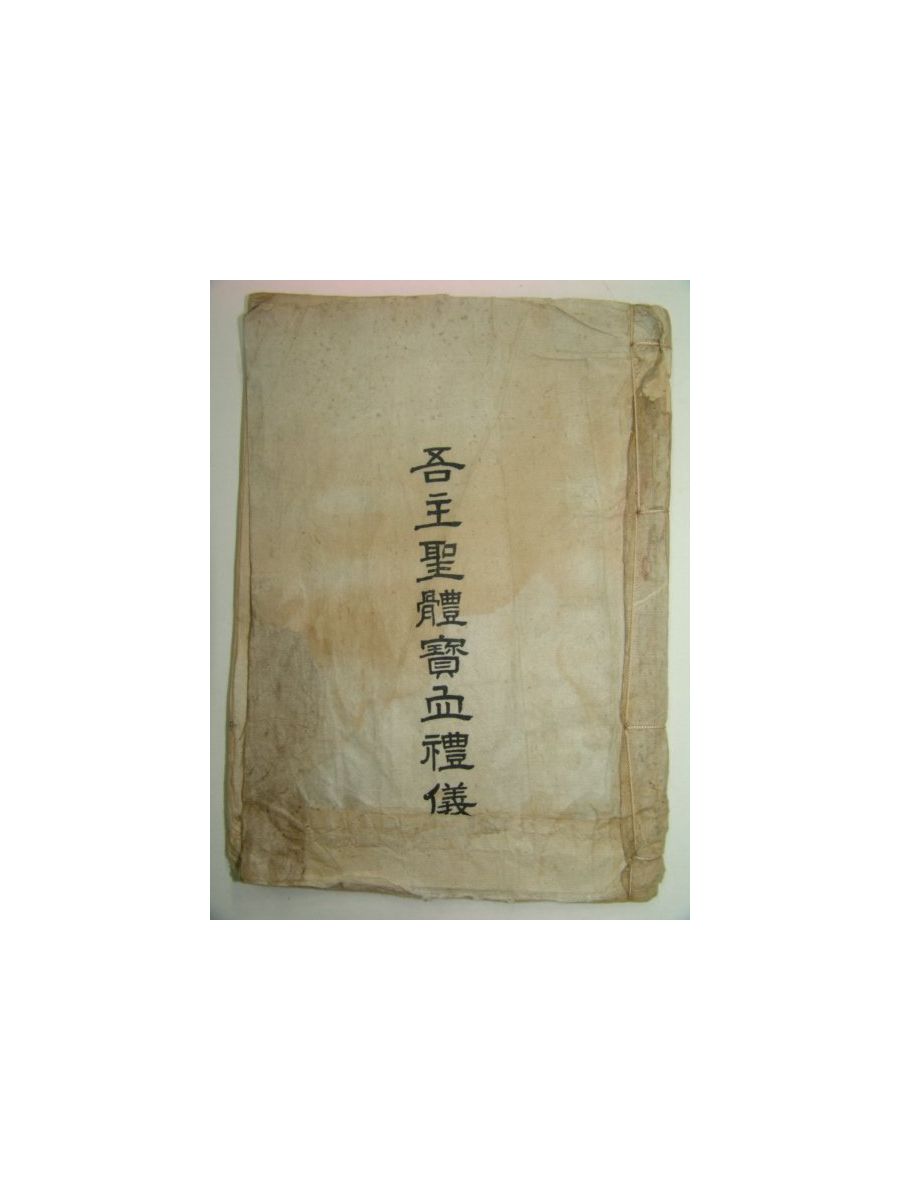 吾主聖體寶血禮儀